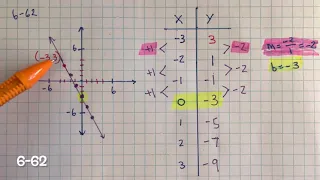 6-62
X Y
(-3,3)
6
-6 6
-6
-3 3
+1 < > -2
-2 1
+1 < > -2
-1 -1
+1 < > -2
0 -3
1 -5
2 -7
3 -9
m = -2/1 = -2
b = -3
6-62